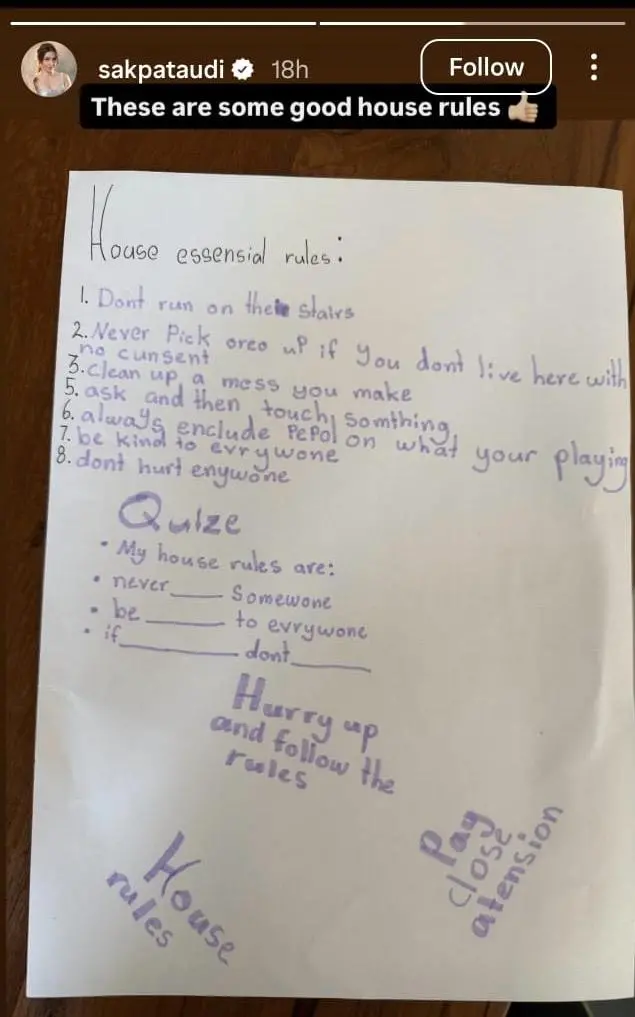 sakpataudi 18h Follow
These are some good house rules 👍🏻
House essensial rules:
1. Dont run on their stairs
2. Never Pick oreo up if you dont live here with
no cunsent
3. clean up a mess you make
5. ask and then touch somthing
6. always enclude PePol on what your playing
7. be kind to evrywone
8. dont hurt enywone
Quize
• My house rules are:
• never____ Somewone
• be ______ to evrywone
• if_________ dont______
Hurry up
and follow the
rules
Pay
close
atension
House
rules